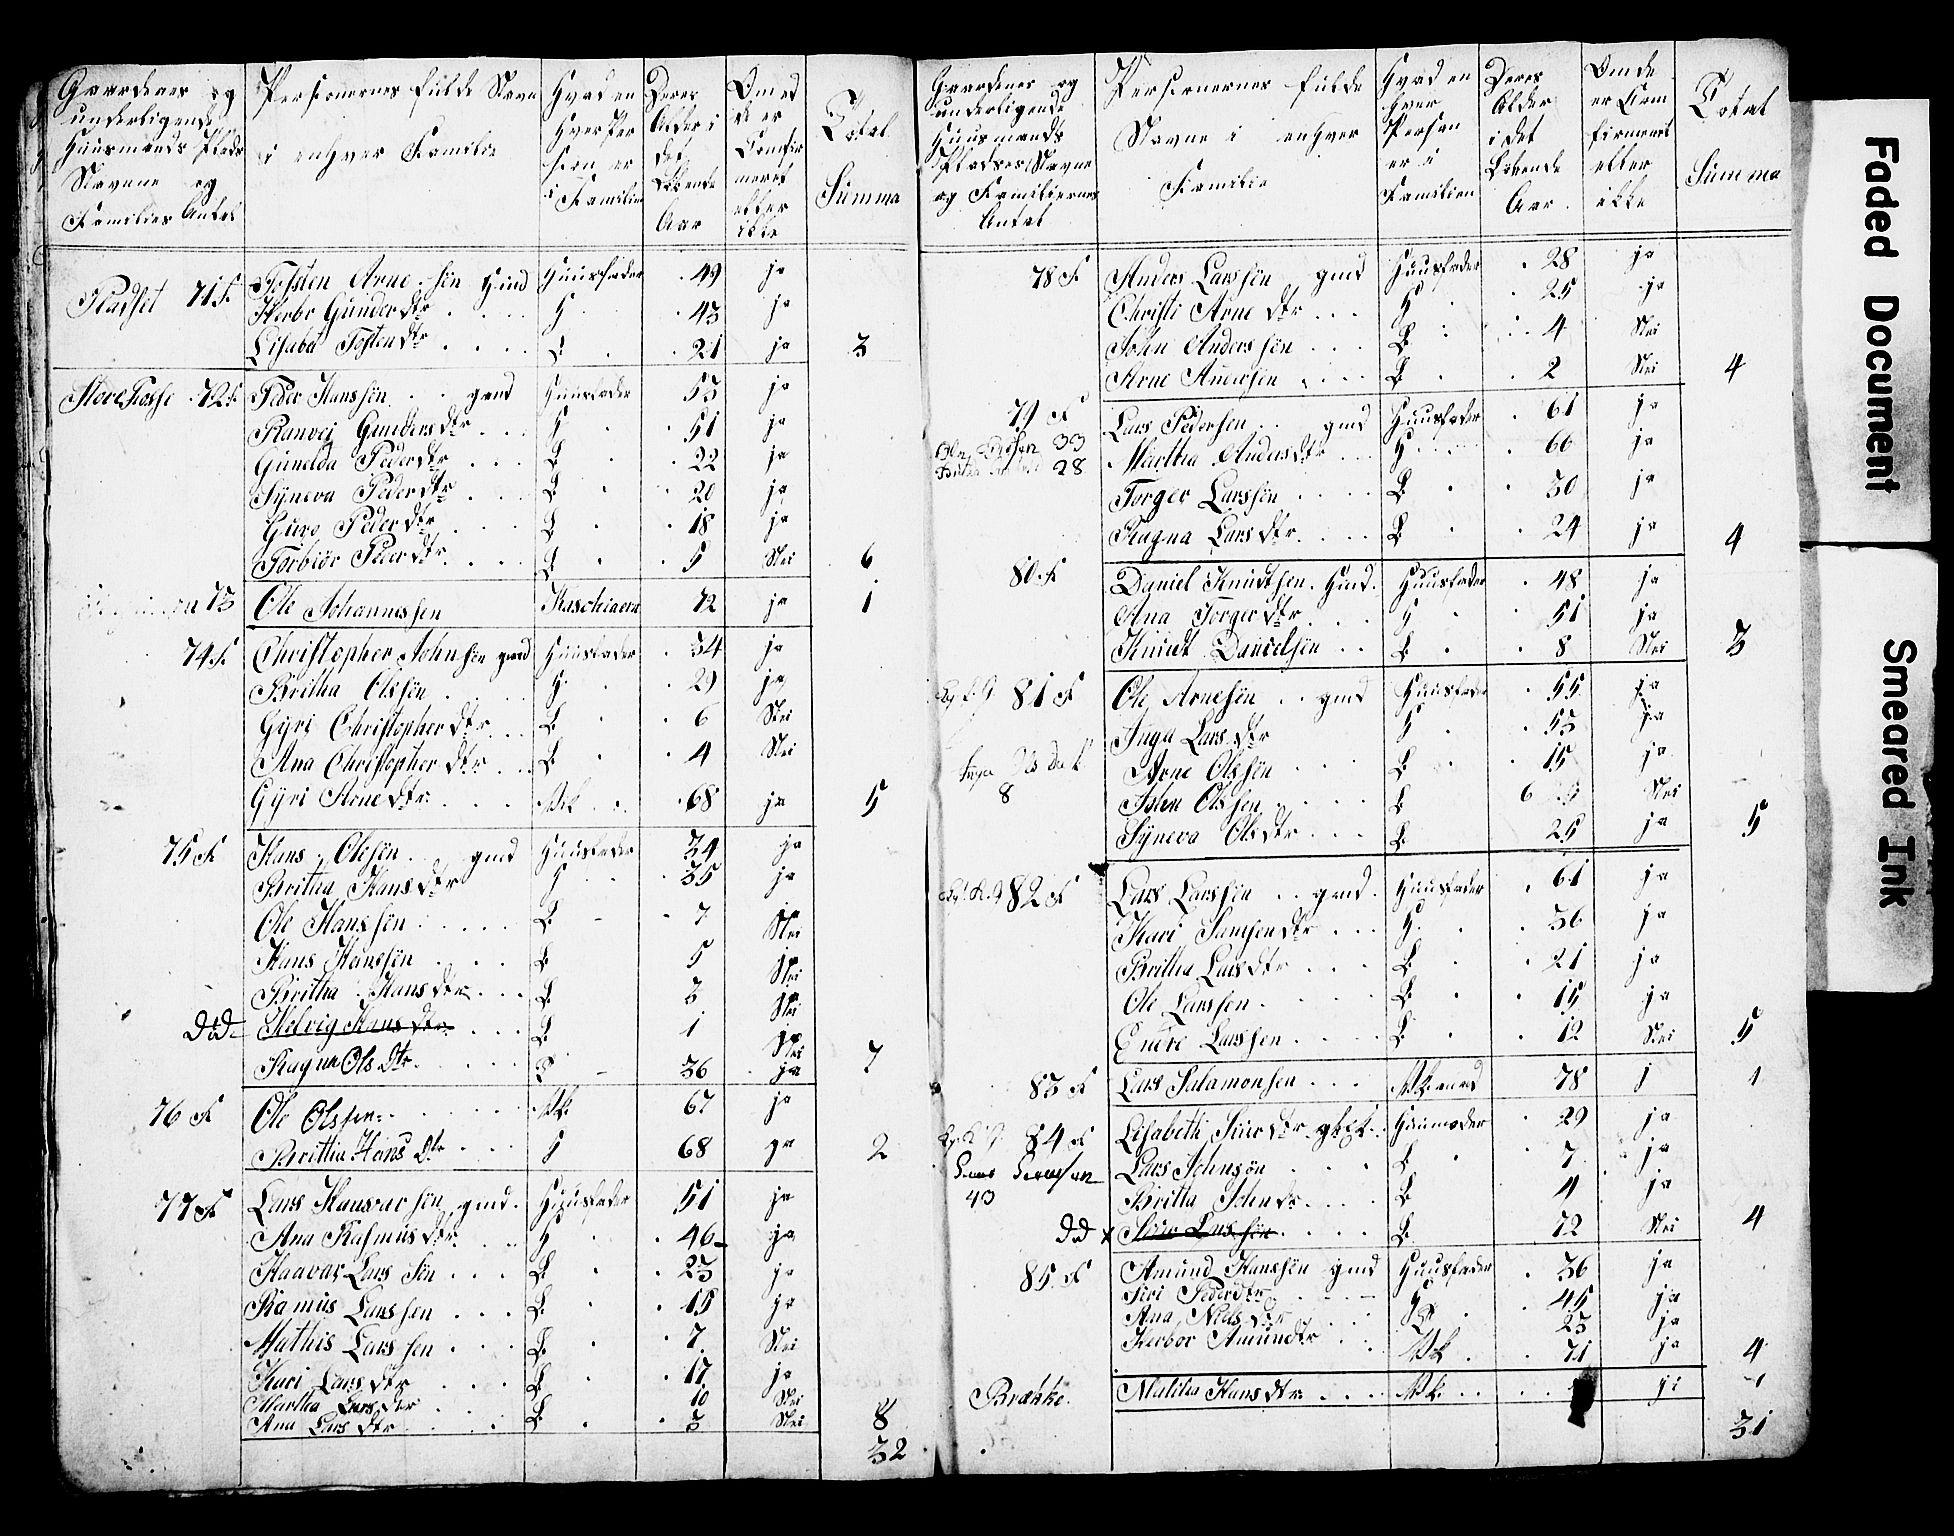 Gaardenes og underligende Huusmands Pladsers Navne og Families Antal | Personernes fulde Navne i enhver Familie | Hvad enhver Person er i Familien | Deres Alder i det Løbende Aar | Om de er Confirmeret eller ikke | Total Summa
Pladset 71 F. Tosten Arnesön Huusfader 49 ja
Gunderdtr H 43 ja
Lisabet Tostendtr B. 21 ja 3
Store Fosse 72 F. Peder Hanssön gmd Huusfader 53 ja
Ranvei Gundersdtr H 51 ja
Gunelda Pederdtr B 22 ja
Syneva Pederdtr B 20 ja
Guro Pederdtr B 18 ja
Torbiör Pederdtr B 5 Nei 6
73 Ole Johannessen 72 ja 1
74 F. Christopher Johnsen gmd Huusfader 34 ja
Britha Olssön H. 29 ja
Gyri Christopherdtr B. 6 Nei
Ana Christopherdtr B 4 Nei
Gyri Arnedtr. 68 ja 5
75 F. Hans Olesön gmd Huusfader 34 ja
Britha Hansdtr H 35 ja
Ole Hanssen B 7 Nei
Hans Hanssön B 5 Nei
Britha Hansdtr B 3 Nei
Död Helvig Hansdtr. B 1 Nei
Ragna Olsdtr. 36 ja 7
76 F. Ole Olssen 67 ja
Britha Hans dtr H 68 ja 2
77 F. Lars Haavarsön gmd. Huusfader 51 ja
Ana Rasmusdtr H 46 ja
Haavar Larssön B. 23 ja
Rasmus Larssen B. 15 ja
Mathis Larssen B. 7. Nei
Kari Larsdtr B 17 ja
Martha Larsdtr 10 Nei
Ana Larsdtr B. 3 Nei 8
32
Gaardenes og underligende Huusmands Pladsers Navne og Familiernes Antal | Personernes fulde Navne i enhver Familie | Hvad enhver Person er i Familien | Deres Alder i det Løbende Aar. | Om de er Confirmeret eller ikke | Total Summa
78 F. Anders Larssön gmd Huusfader 28 ja
Christi Arnedtr H 25 ja
John Anderssön B 4 Nei
Arne Andersön B 2 Nei 4
79 F Lars Pedersen gmd Huusfader 61 ja
33
28
Martha Andersdtr H 66 ja
Torger Larssön B 30 ja
Ragna Larsdtr. B 24 ja 4
80. F. Daniel Knudtsen. Huusfader 48 ja
Ana Torgerdtr H 51 ja
Knudt Danielsön B 8 Nei 3
81 F Ole Arnesön gmd Huusfader 55 ja
Inga Larsdtr H 53 ja
Arne Olssön B 15 ja
8
John Olssen B 6 Nei
Syneva Olsdtr B. 25 ja 5
82 F Lars Larssön gmd. Huusfader 61 ja
Kari Samsendtr H. 36 ja
Britha Larsdtr B 21 ja
Ole Larssen B. 15 ja
Endre Larssen B. 12 Nei 5
83 F Lars Salamonsen 78 j 1
84 F Lisabeth Siurdtr Huusmoder 29 ja
Lars Johnsön B 7 ja
43
Britha Johndr. B 4 ja
död x Siur Larssön B. 72 Nei 4
85. F Amund Hanssön gmd Huusfader 36 ja
Siri Pederdtr H 45 ja
Ana Nielsdtr B 23 ja
Herbor Amundtr 71 ja 4
Brække. Malitha Hansdtr. 1
31
Faded Document
Smeared Ink